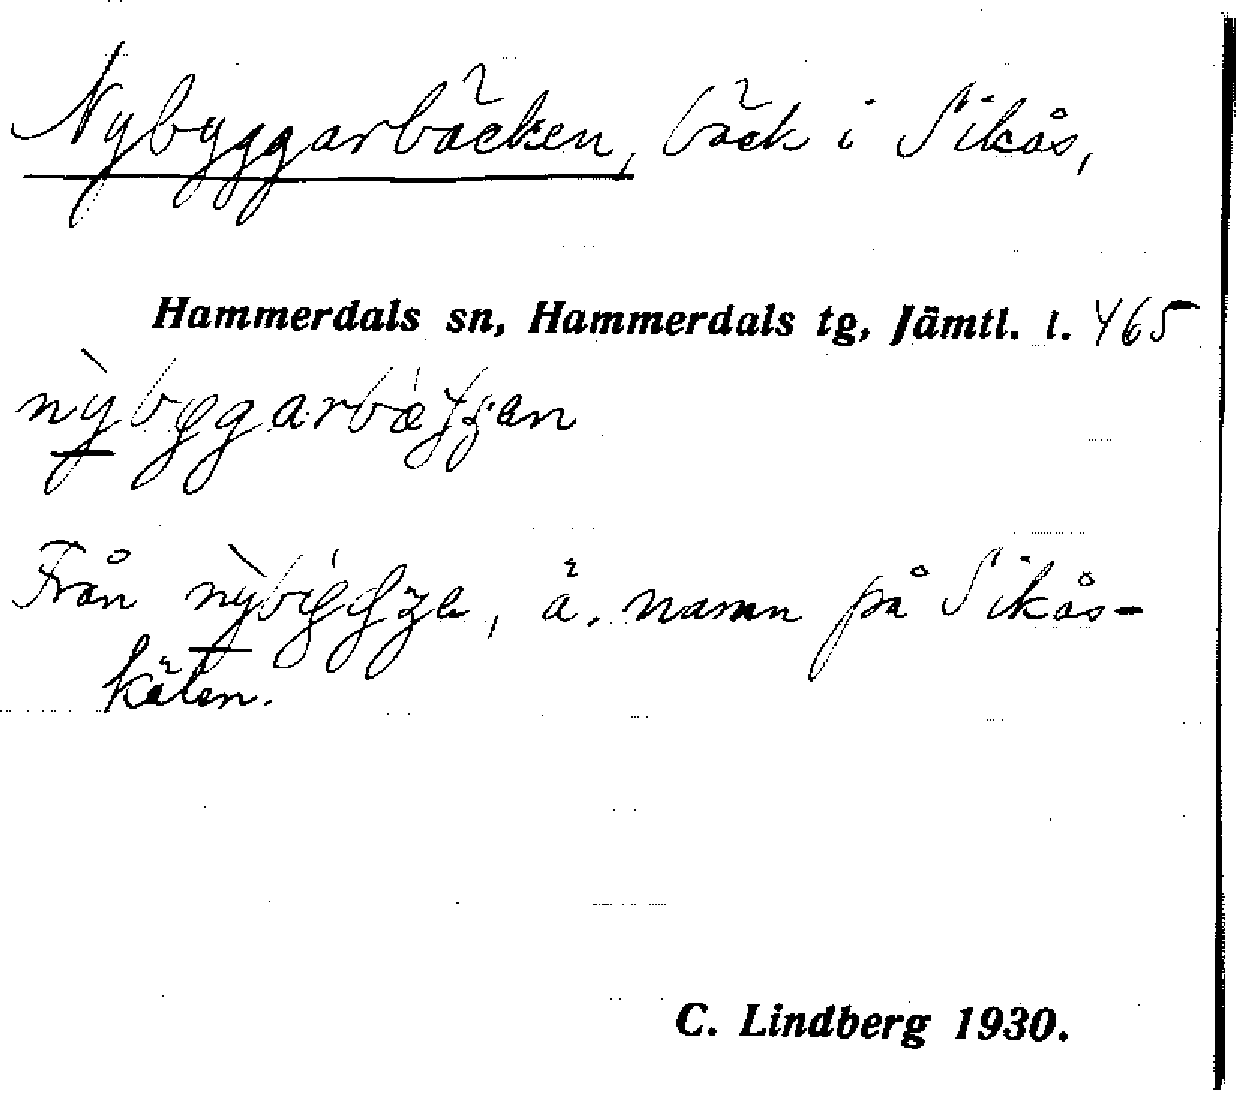 Nybyggarbäcken, bäck i Sikås,
Hammerdals sn, Hammerdals tg, Jämtl. l. 465
Från
å. namn på Sikås-
kälen.
C. Lindberg 1930.